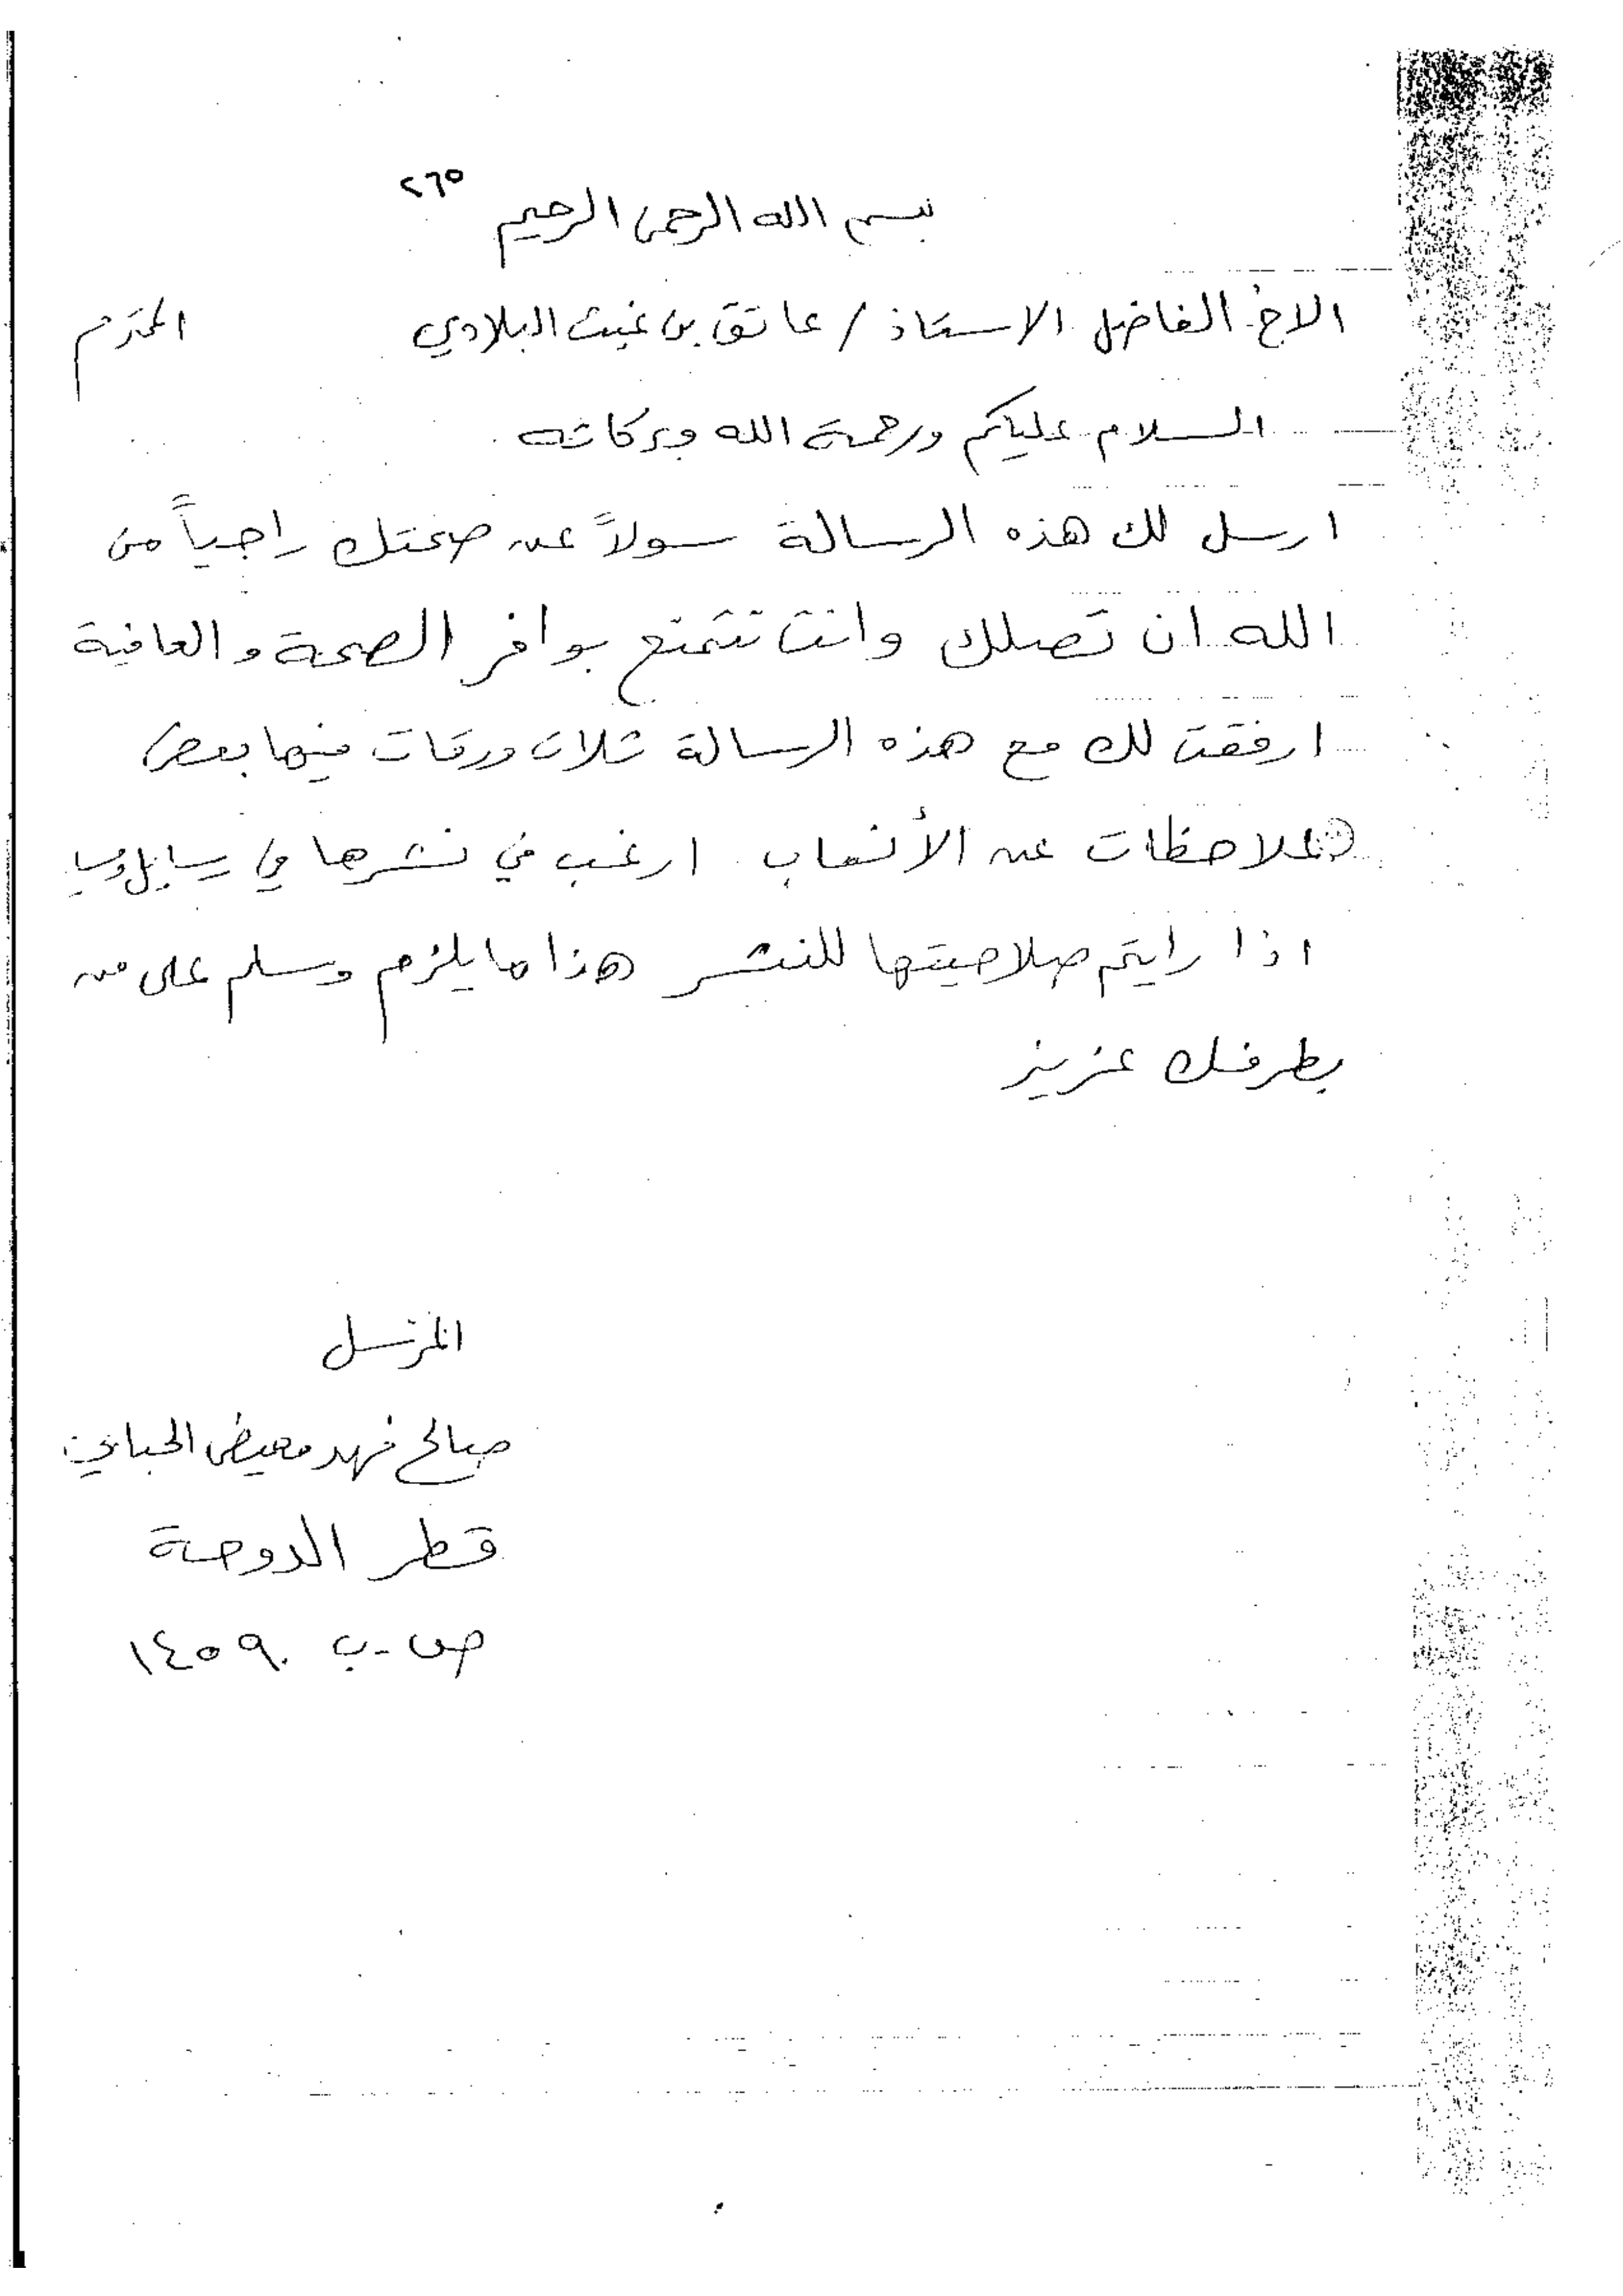 ٢٦٥
بسم الله الرحمن الرحيم
الاخ الفاضل الاستاذ / عاتق بن غيث البلادي المحترم
السلام عليكم ورحمة الله وبركاته
ارسل لك هذه الرسالة سولاً عن صحتك راجياً من
الله ان تصلك وانت تتمتع بوافر الصحة والعافية
ارفقت لك مع هذه الرسالة ثلاث ورقات فيها بعض
الملاحظات عن الأنساب ارغب في نشرها في
اذا رايتم صلاحيتها للنشر هذا ما يلزم وسلم على من
بطرفك عزيز
المرسل
صالح فهد معيض الحبابي
قطر الدوحة
ص.ب ١٤٥٩٠